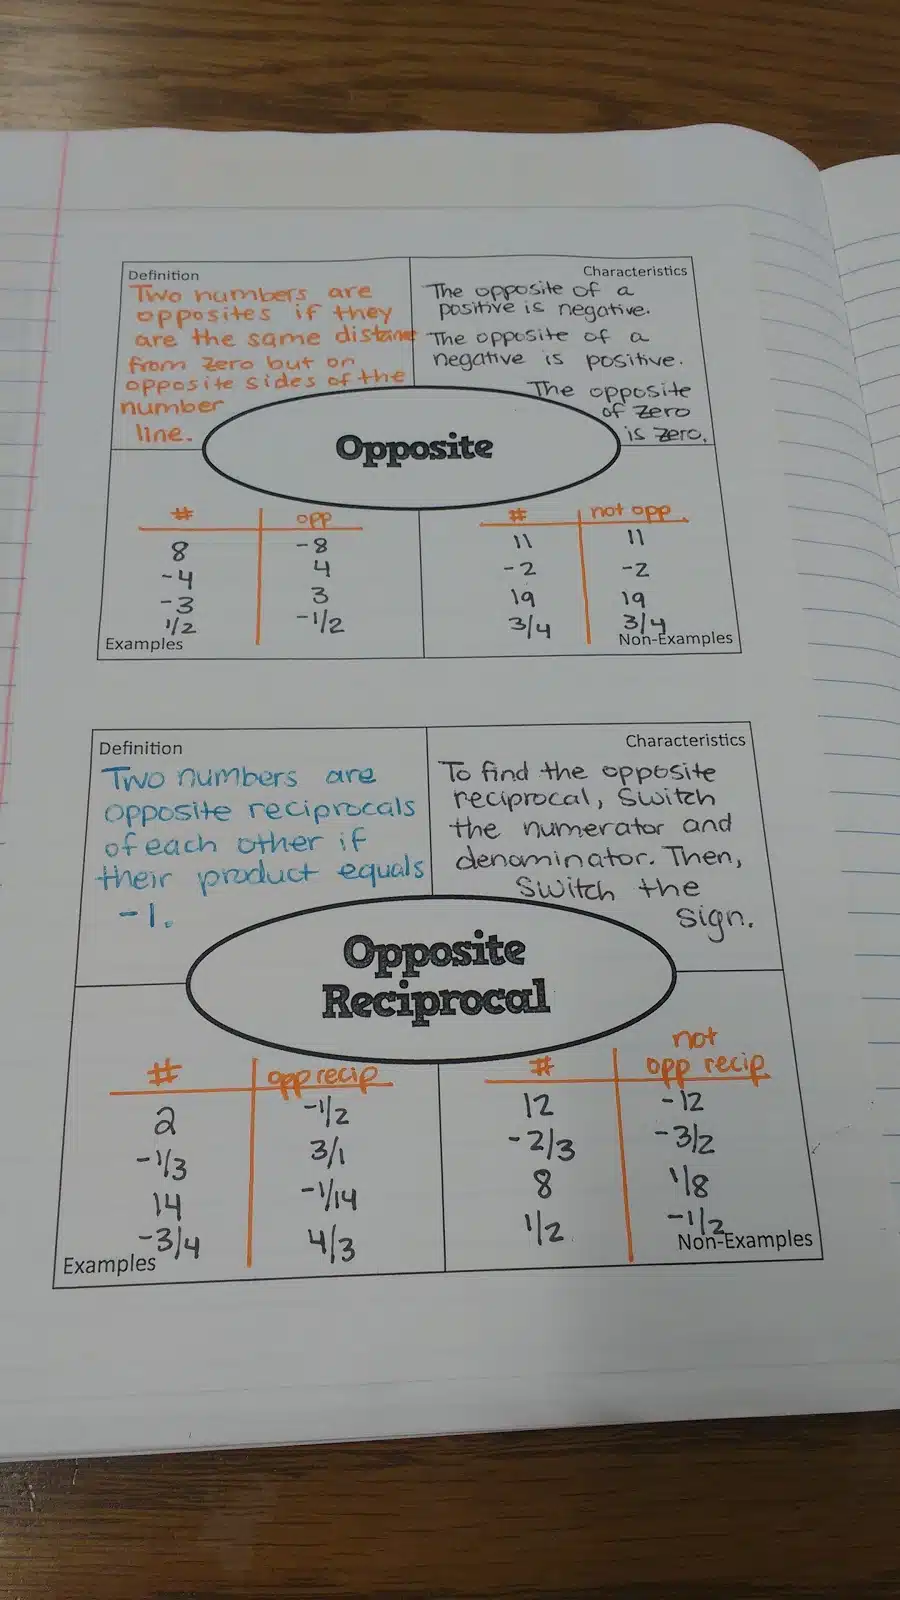 Definition
Two numbers are
opposites if they
are the same distance
from zero but on
opposite sides of the
number
line.
Characteristics
The opposite of a
positive is negative.
The opposite of a
negative is positive.
The opposite
of zero
is zero.
Opposite
# opp
8 -8
-4 4
-3 3
1/2 -1/2
Examples
# not opp
11 11
-2 -2
19 19
3/4 3/4
Non-Examples
Definition
Two numbers are
opposite reciprocals
of each other if
their product equals
-1.
Characteristics
To find the opposite
reciprocal, switch
the numerator and
denominator. Then,
switch the
sign.
Opposite
Reciprocal
# opp recip
2 -1/2
-1/3 3/1
14 -1/14
-3/4 4/3
Examples
not
# opp recip
12 -12
-2/3 -3/2
8 1/8
1/2 -1/2
Non-Examples